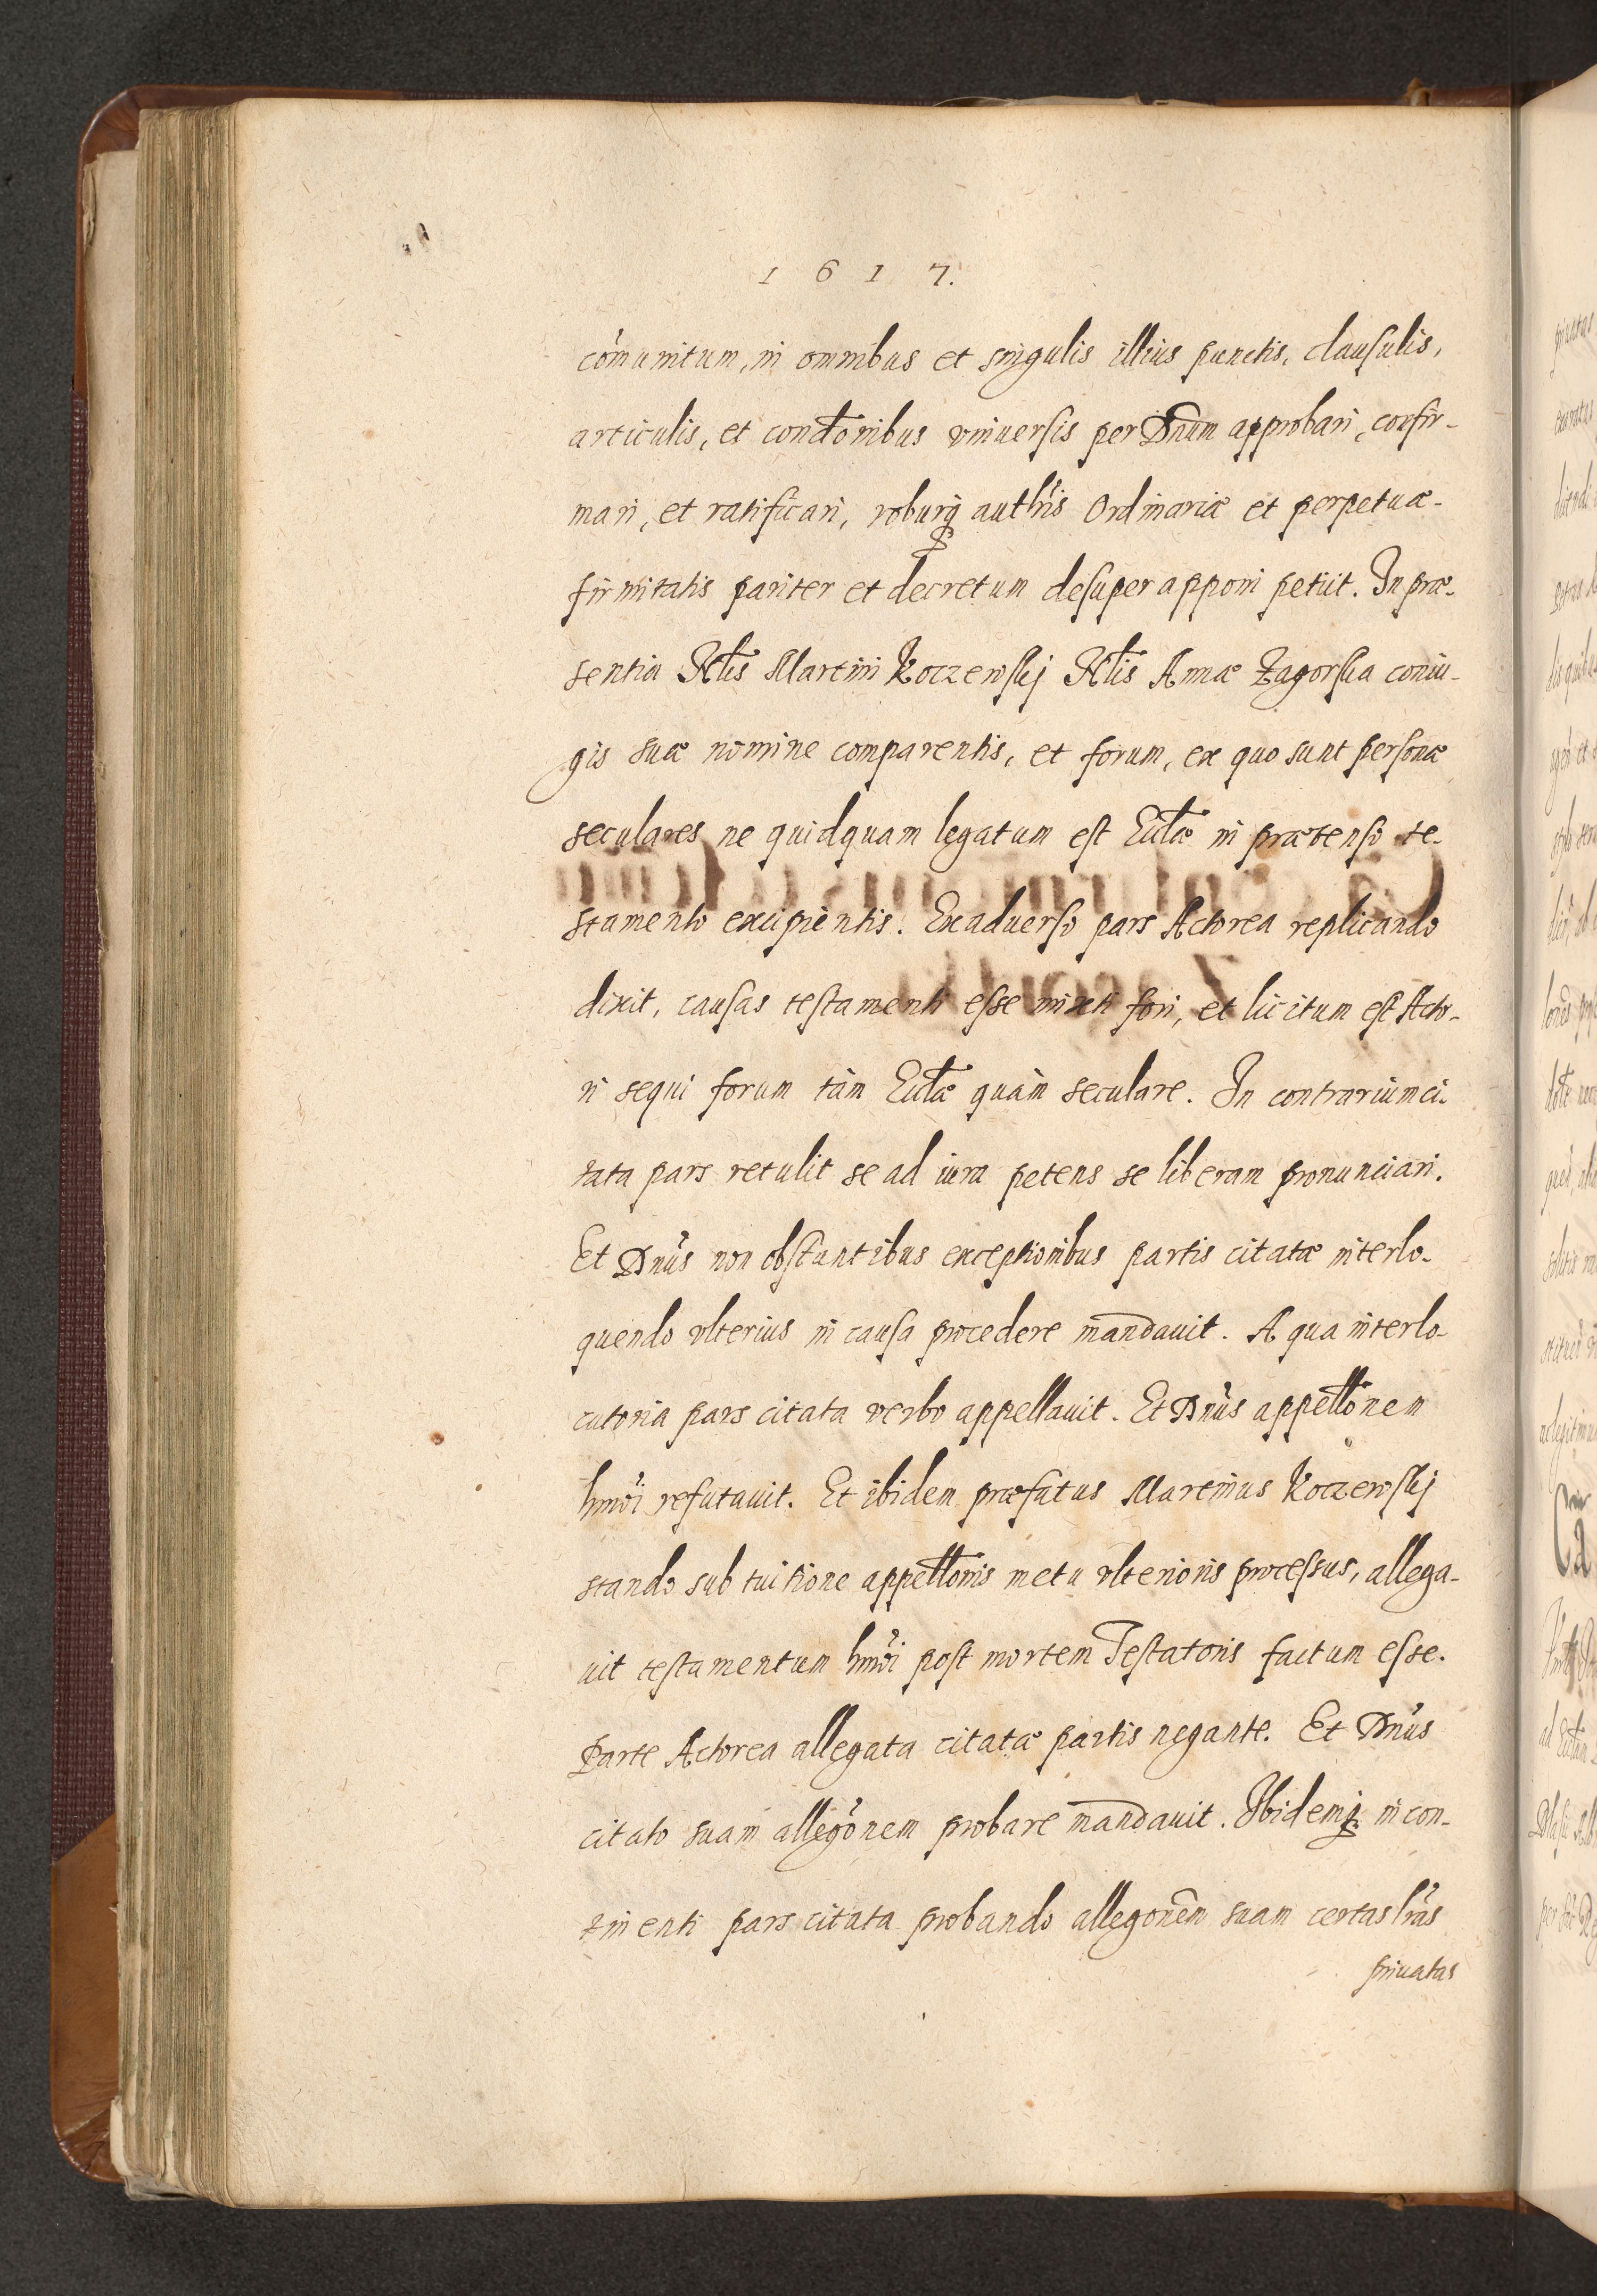 1617.
com̃unitum, in omnibus et singulis illius punctis, clausulis,
articulis, et condõnibus vniuersis per Dñum approbari, confir-
mari, et ratificari, roburq; authr̃is Ordinariæ et perpetuæ
firmitatis pariter et decretum desuper apponi petiit. In præ-
sentia Nt̃lis Martini Koczewskj Nt̃lis Annæ Zagorska coniu-
gis suæ nomine comparentis, et forum, ex quo sunt personæ
seculares ne quidquam legatum est Ecclæ̃ in prætenso te-
stamento excipientis. Exaduerso pars Actorea replicando
dixit, causas testamenti esse mixti fori, et licitum est Acto-
ri sequi forum tàm Ecclæ̃ quàm seculare. In contrarium ci-
tata pars retulit se ad iura petens se liberam pronunciari.
Et Dñus non obstantibus exceptionibus partis citatæ interlo-
quendo vlterius in causa procedere mandauit. A qua interlo-
cutoria pars citata verbo appellauit. Et Dñus appellõnem
hmõi refutauit. Et ibidem præfatus Martinus Koczewskj
stando sub tuitione appellõnis metu vlterioris processus, allega-
uit testamentum hmõi post mortem Testatoris factum esse.
Parte Actorea allegata citatæ partis negante. Et Dñus
citato suam allegõnem probare mandauit. Ibidemq; in con-
tinenti pars citata probando allegonẽm suam certas lr̃as
priuatas